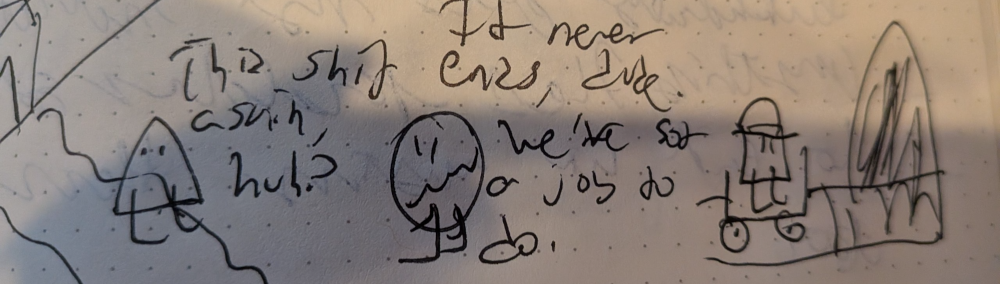 This shit
again,
huh?
It never
ends, dude.
We've got
a job to
do.